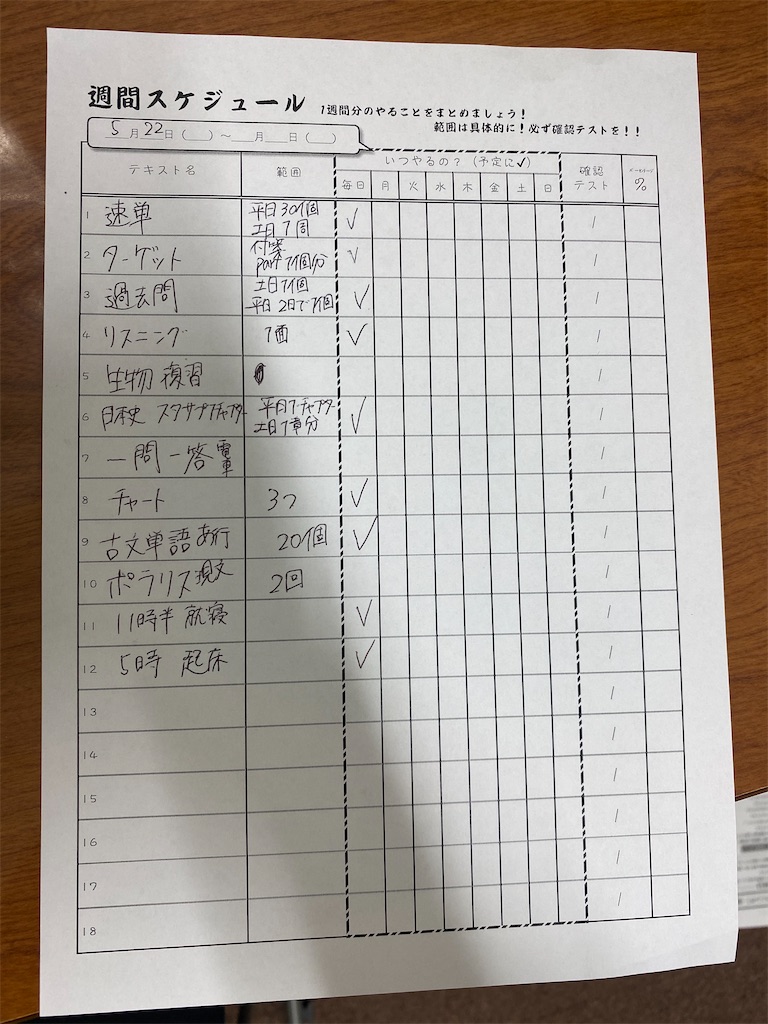 週間スケジュール
1週間分のやることをまとめましょう！
範囲は具体的に！必ず確認テストを！！
5月22日（　）～　月　日（　）
テキスト名 範囲 いつやるの？（予定に✓） 確認テスト %
毎日 月 火 水 木 金 土 日
1 速単 平日30個 ✓ /
土日7周
2 ターゲット 付箋 ✓ /
part 7個分
3 過去問 土日7個 ✓ /
平日2日で7個
4 リスニング 1面 ✓ /
5 生物 復習 /
6 日本史 スタサプ1チャプター 平日1チャプター ✓ /
土日1章分
7 一問一答 電車 /
8 チャート 3つ ✓ /
9 古文単語 あ行 20個 ✓ /
10 ポラリス 現文 2回 /
11 11時半 就寝 ✓ /
12 5時 起床 ✓ /
13 /
14 /
15 /
16 /
17 /
18 /